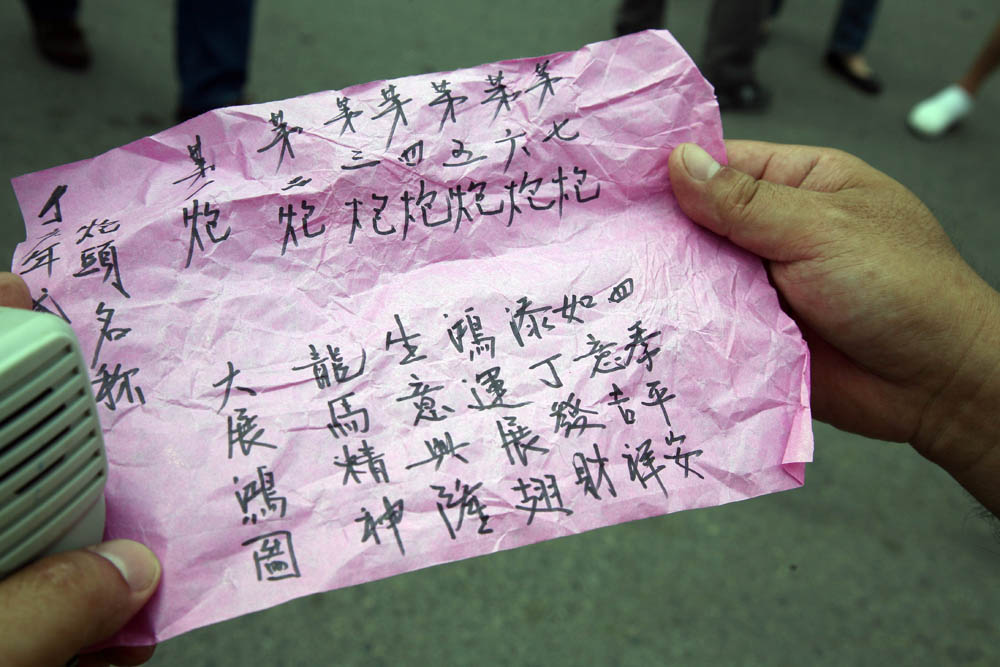 年
炮頭名称
第一炮 大展鴻圖
第二炮 龍馬精神
第三炮 生意興隆
第四炮 鴻運展翅
第五炮 添丁發財
第六炮 如意吉祥
第七炮 四季平安